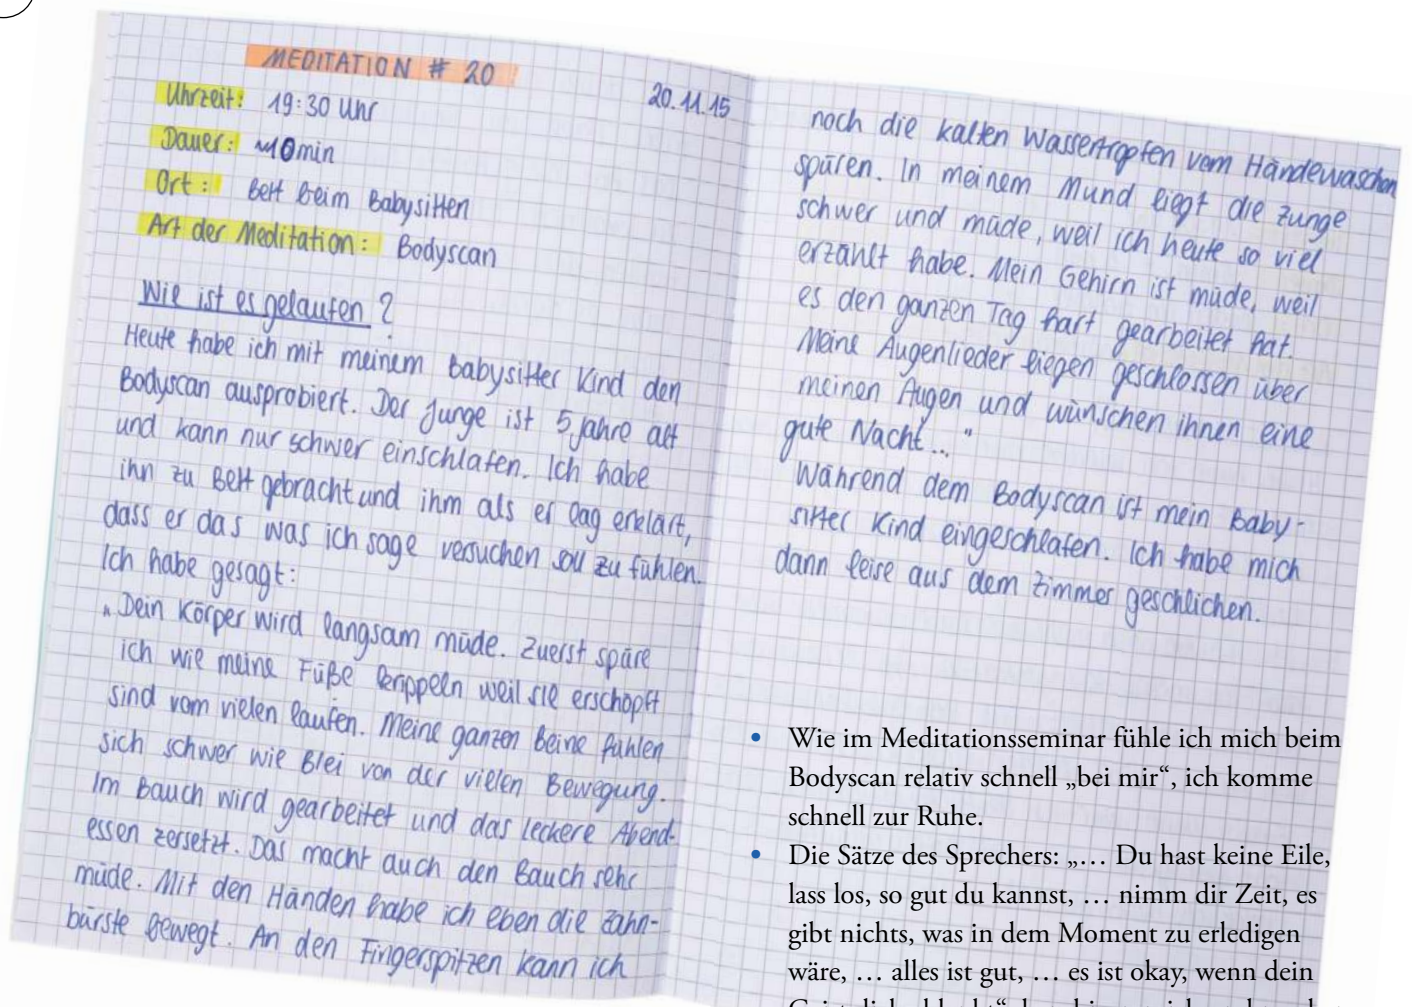 MEDITATION # 20
20.11.15
Uhrzeit: 19:30 Uhr
Dauer: ~10min
Ort: Bett beim Babysitten
Art der Meditation: Bodyscan
Wie ist es gelaufen?
Heute habe ich mit meinem Babysitter Kind den
Bodyscan ausprobiert. Der Junge ist 5 Jahre alt
und kann nur schwer einschlafen. Ich habe
ihn zu Bett gebracht und ihm als er lag erklärt,
dass er das was ich sage versuchen soll zu fühlen.
Ich habe gesagt:
„Dein Körper wird langsam müde. Zuerst spüre
ich wie meine Füße kribbeln weil sie erschöpft
sind vom vielen laufen. Meine ganzen Beine fühlen
sich schwer wie Blei von der vielen Bewegung.
Im Bauch wird gearbeitet und das leckere Abend-
essen zersetzt. Das macht auch den Bauch sehr
müde. Mit den Händen habe ich eben die Zahn-
bürste bewegt. An den Fingerspitzen kann ich
noch die kalten Wassertropfen vom Händewaschen
spüren. In meinem Mund liegt die Zunge
schwer und müde, weil ich heute so viel
erzählt habe. Mein Gehirn ist müde, weil
es den ganzen Tag hart gearbeitet hat.
Meine Augenlieder liegen geschlossen über
meinen Augen und wünschen ihnen eine
gute Nacht..."
Während dem Bodyscan ist mein Baby-
sitter Kind eingeschlafen. Ich habe mich
dann leise aus dem Zimmer geschlichen.
• Wie im Meditationsseminar fühle ich mich beim
Bodyscan relativ schnell „bei mir“, ich komme
schnell zur Ruhe.
• Die Sätze des Sprechers: „… Du hast keine Eile,
lass los, so gut du kannst, … nimm dir Zeit, es
gibt nichts, was in dem Moment zu erledigen
wäre, … alles ist gut, … es ist okay, wenn dein